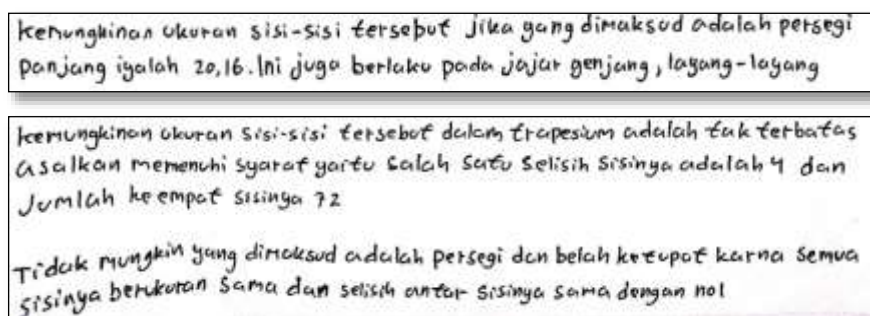 kemungkinan ukuran sisi-sisi tersebut jika yang dimaksud adalah persegi
panjang iyalah 20,16. Ini juga berlaku pada jajar genjang, layang-layang
kemungkinan ukuran sisi-sisi tersebut dalam trapesium adalah tak terbatas
asalkan memenuhi syarat yaitu salah satu selisih sisinya adalah 4 dan
Jumlah ke empat sisinya 72
Tidak mungkin yang dimaksud adalah persegi dan belah ketupat karna semua
sisinya berukuran sama dan selisih antar sisinya sama dengan nol